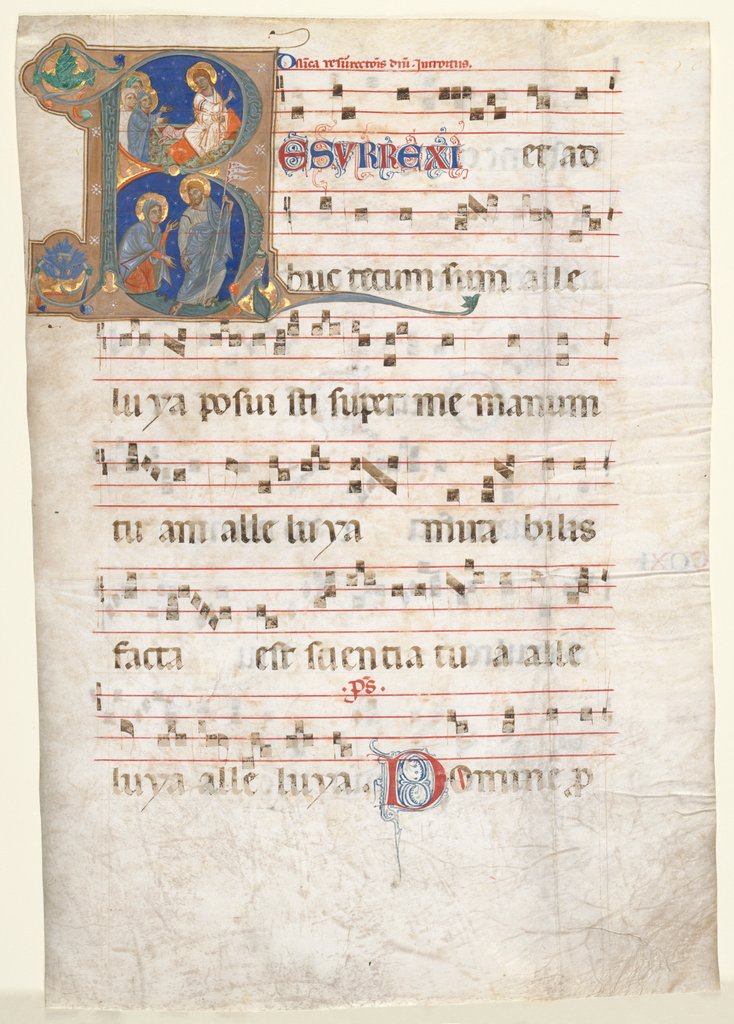 Dñica resurrectõis dñi. Introitus.
RESVRREXI et ad
huc tecum sum alle
lu ya posui sti super me manum
tu am alle lu ya mira bilis
facta est scientia tu a alle
.ps.
lu ya alle lu ya. Domine p